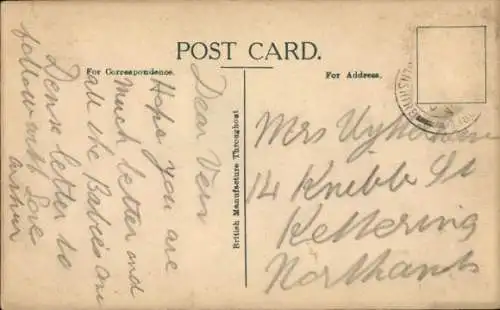 POST CARD.
For Correspondence.
For Address.
British Manufacture Throughout
Dear Vera
Hope you are
Much better and
all the Babies are
Dense letter to
follow with Love
Mrs
14 Knibb St
Kettering
Northants